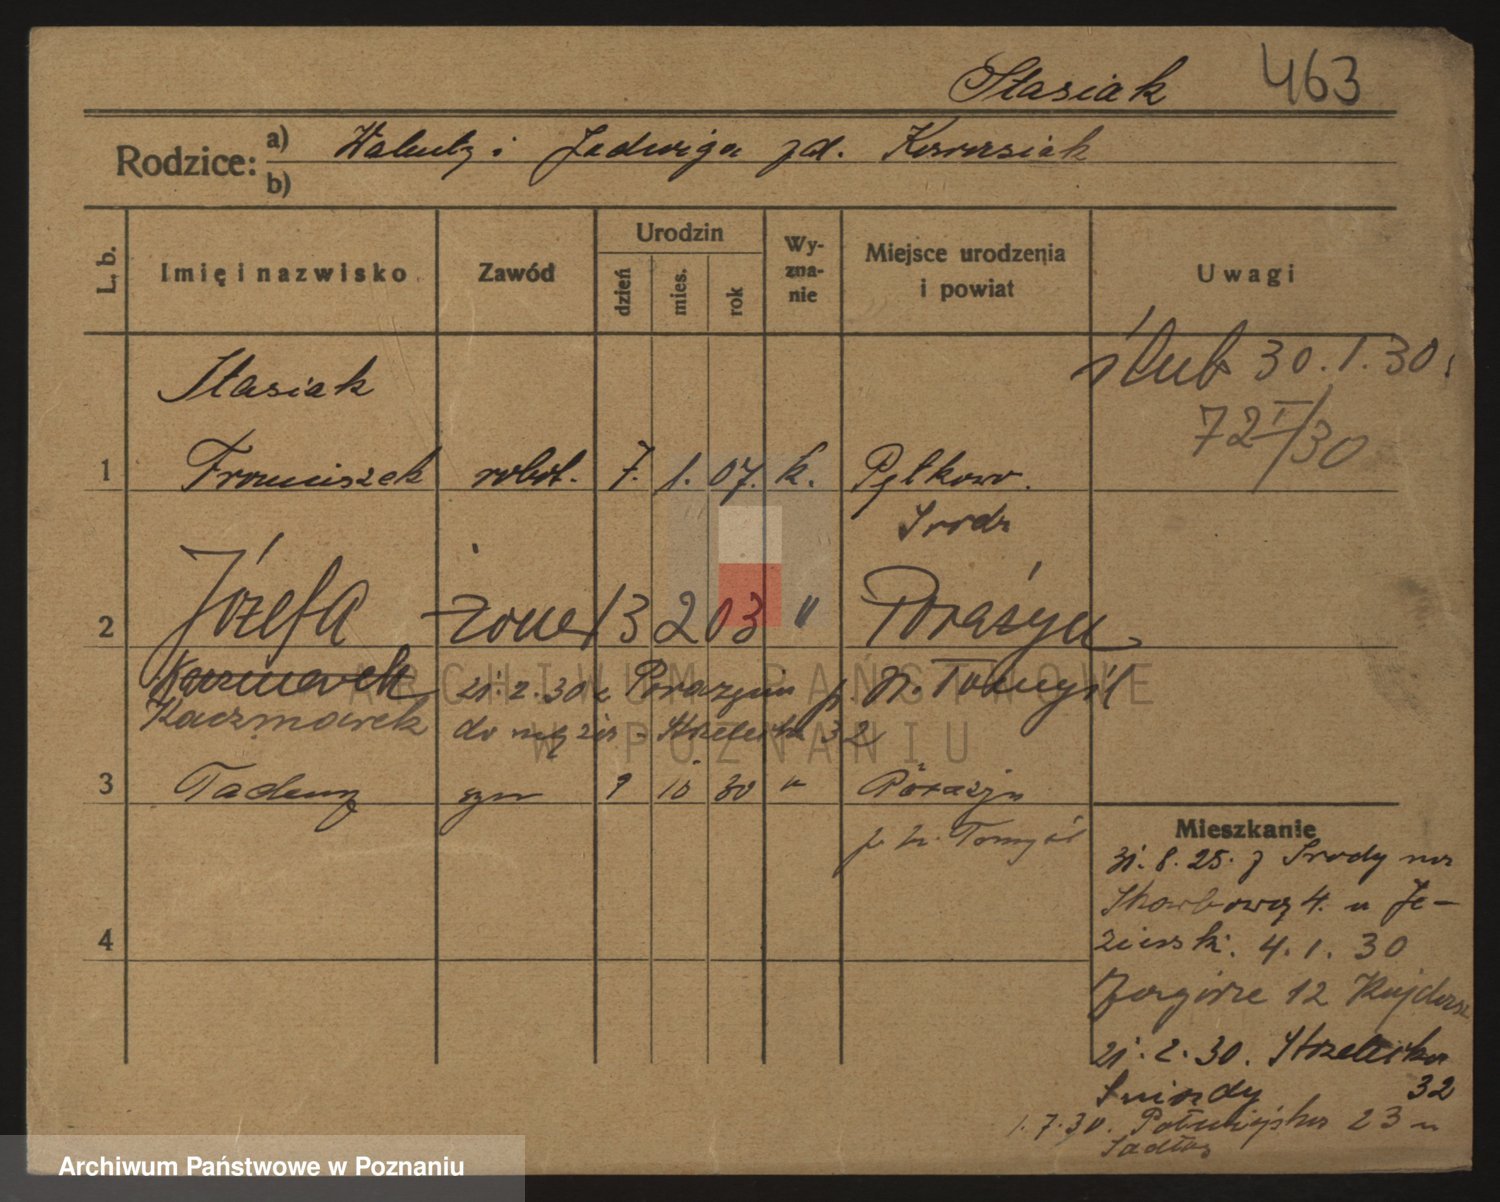 Stasiak 463
Rodzice: a) Walenty i Jadwiga zd.
b)
L. b. Imię i nazwisko Zawód Urodzin dzień mies. rok Wy-zna-nie Miejsce urodzenia i powiat Uwagi
ślub 30.1.30.
72 I/30
Stasiak
1 Franciszek robot. 7. 1. 07. k. Pętkowo.
Środa
2 Józefa żona 13 2 03 " Porażyn
Kaczmarek 21.2.30 z Porażyna p. N. Tomyśl
Kaczmarek do męża - Strzelecka 32
3 Tadeusz syn 9 10 30 " Porażyn
p. N. Tomyśl
4
Mieszkanie
31.8.25. z Środy na
Skarbową 4. u Je-
zierski. 4.1.30
Zagórze 12
21.2.30. Strzelecka
32
1.7.30. 23 u
ARCHIWUM PAŃSTWOWE
W POZNANIU
Archiwum Państwowe w Poznaniu